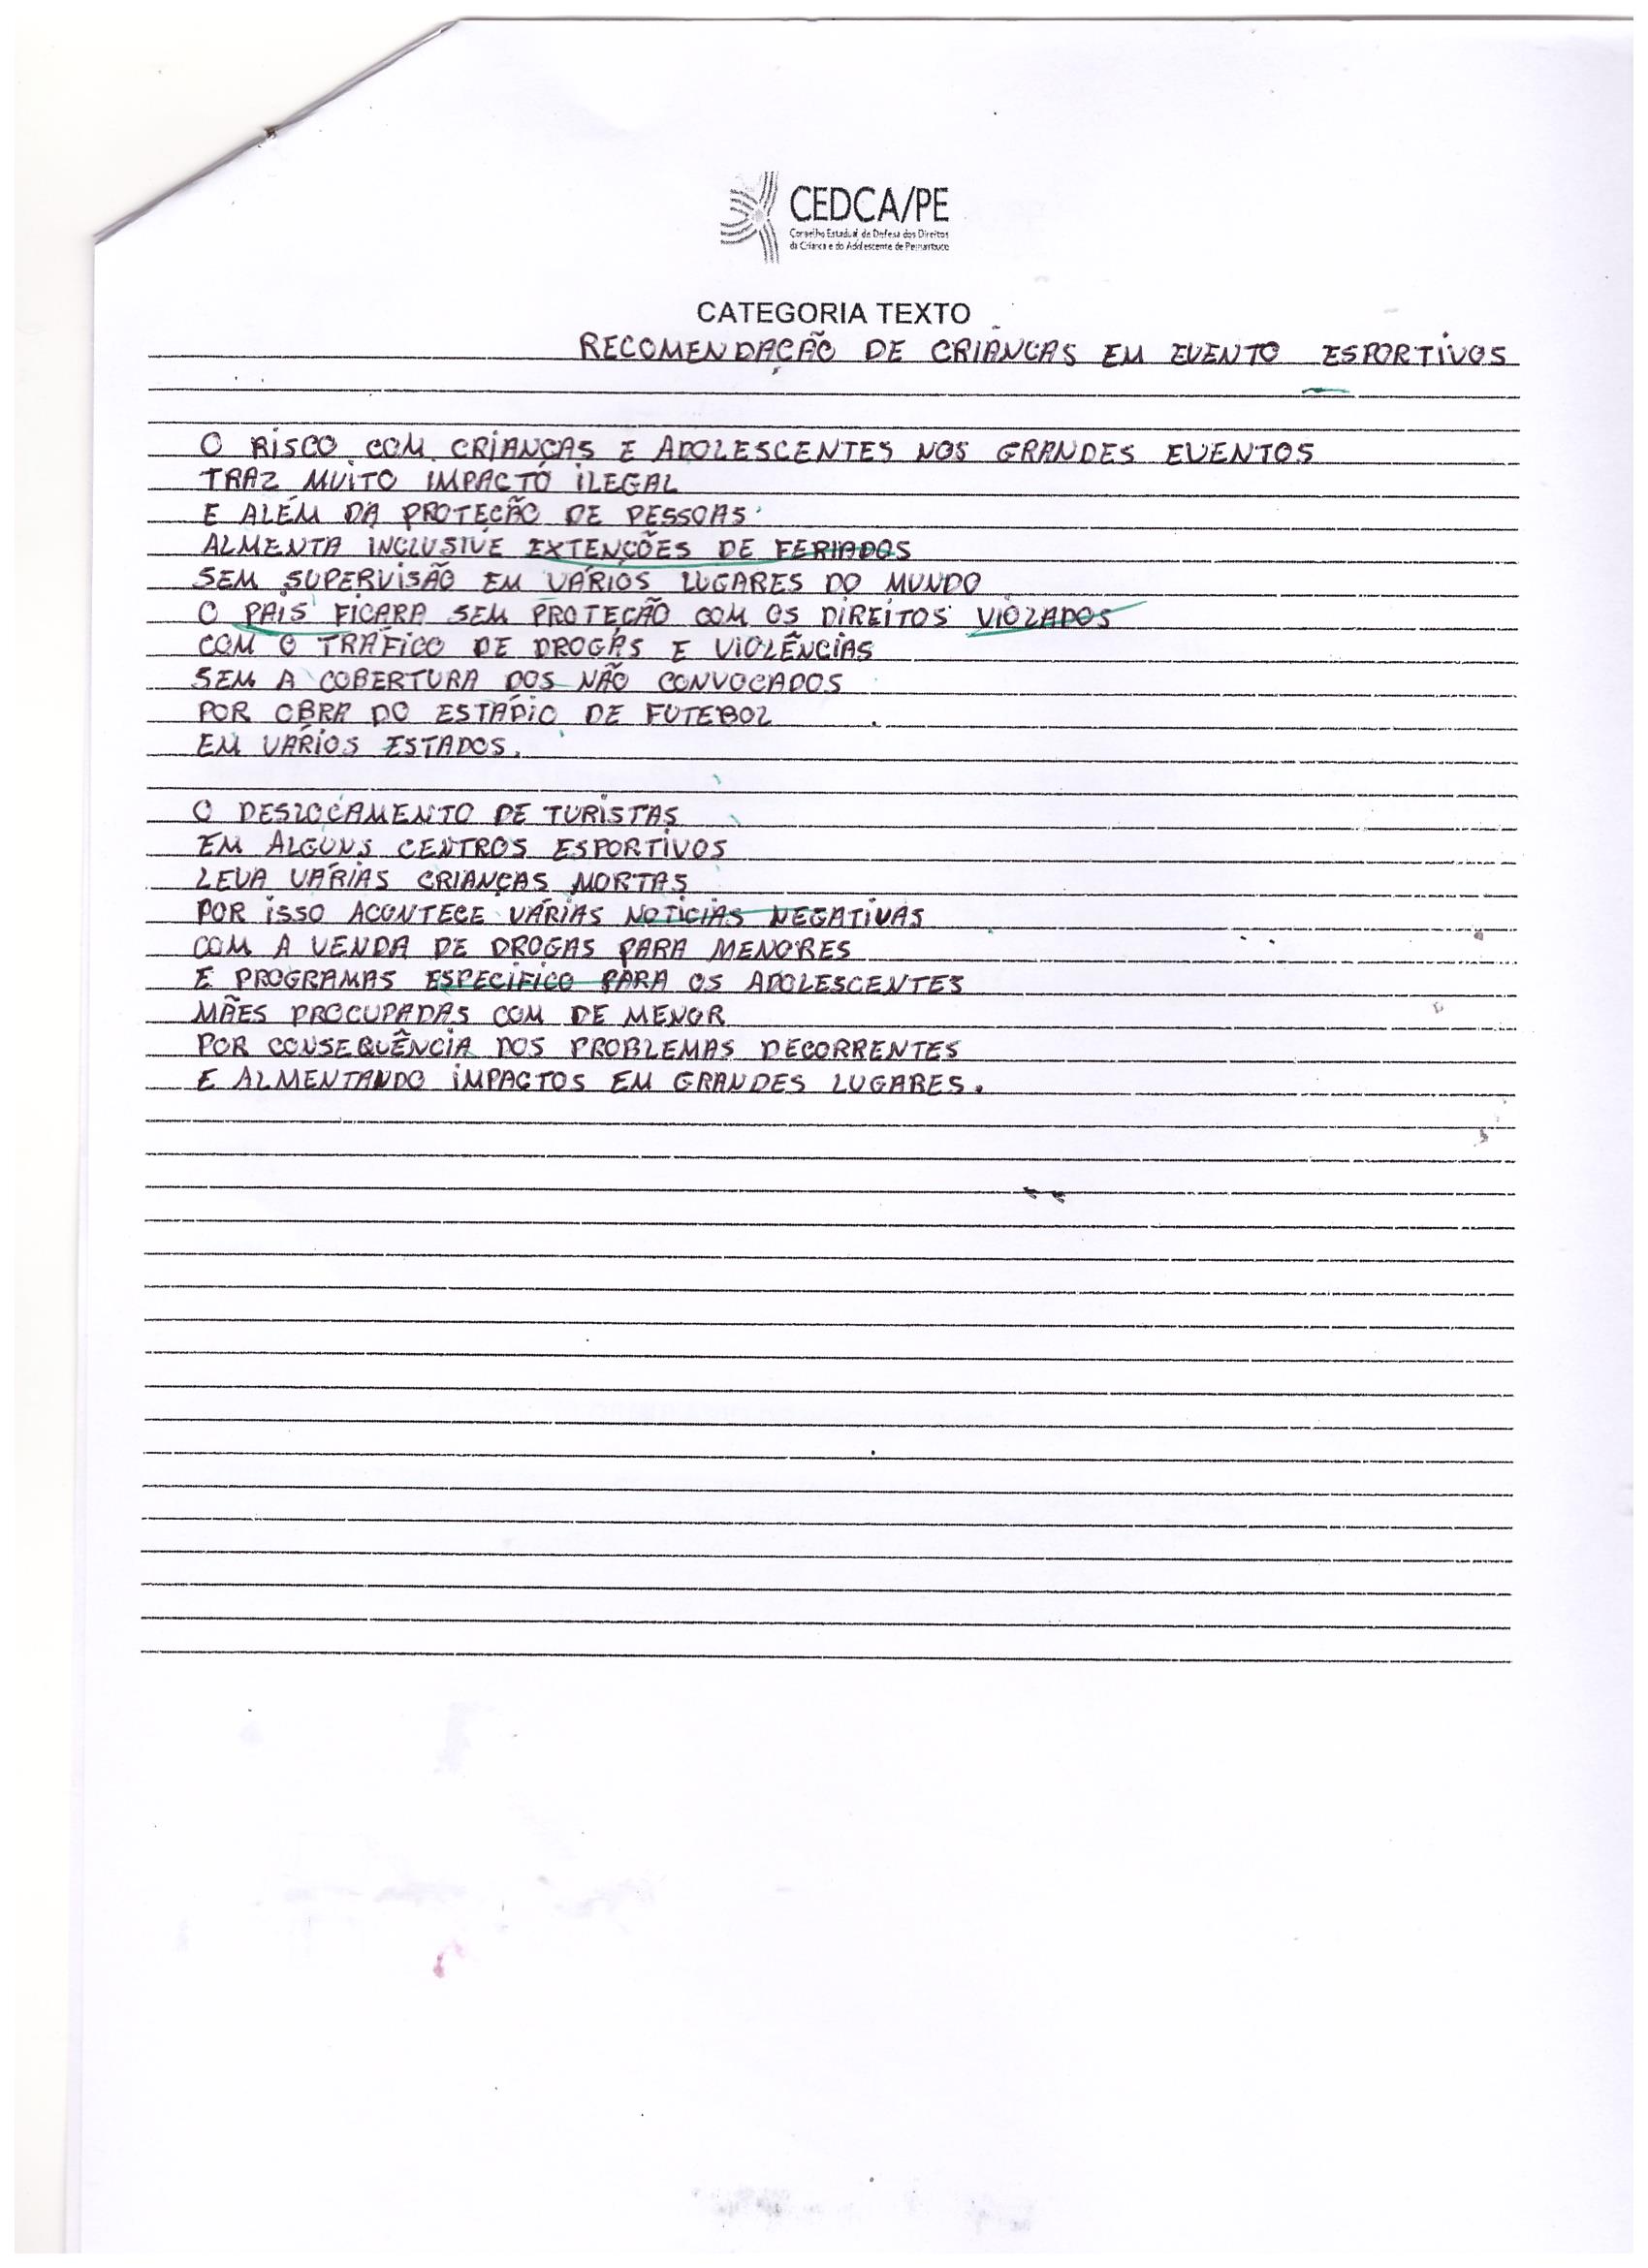 CEDCA/PE
Conselho Estadual de Defesa dos Direitos
da Criança e do Adolescente de Pernambuco
CATEGORIA TEXTO
RECOMENDAÇÃO DE CRIANÇAS EM EVENTO ESPORTIVOS
O RISCO COM CRIANÇAS E ADOLESCENTES NOS GRANDES EVENTOS
TRAZ MUITO IMPACTO ILEGAL
E ALÉM DA PROTEÇÃO DE PESSOAS
ALMENTA INCLUSIVE EXTENÇÕES DE FERIADOS
SEM SUPERVISÃO EM VÁRIOS LUGARES DO MUNDO
O PAIS FICARA SEM PROTEÇÃO COM OS DIREITOS VIOLADOS
COM O TRÁFICO DE DROGAS E VIOLÊNCIAS
SEM A COBERTURA DOS NÃO CONVOCADOS
POR OBRA DO ESTÁDIO DE FUTEBOL
EM VÁRIOS ESTADOS.
O DESLOCAMENTO DE TURISTAS
EM ALGUNS CENTROS ESPORTIVOS
LEVA VÁRIAS CRIANÇAS MORTAS
POR ISSO ACONTECE VÁRIAS NOTICIAS NEGATIVAS
COM A VENDA DE DROGAS PARA MENORES
E PROGRAMAS ESPECIFICO PARA OS ADOLESCENTES
MÃES PROCUPADAS COM DE MENOR
POR CONSEQUÊNCIA DOS PROBLEMAS DECORRENTES
E ALMENTANDO IMPACTOS EM GRANDES LUGARES.